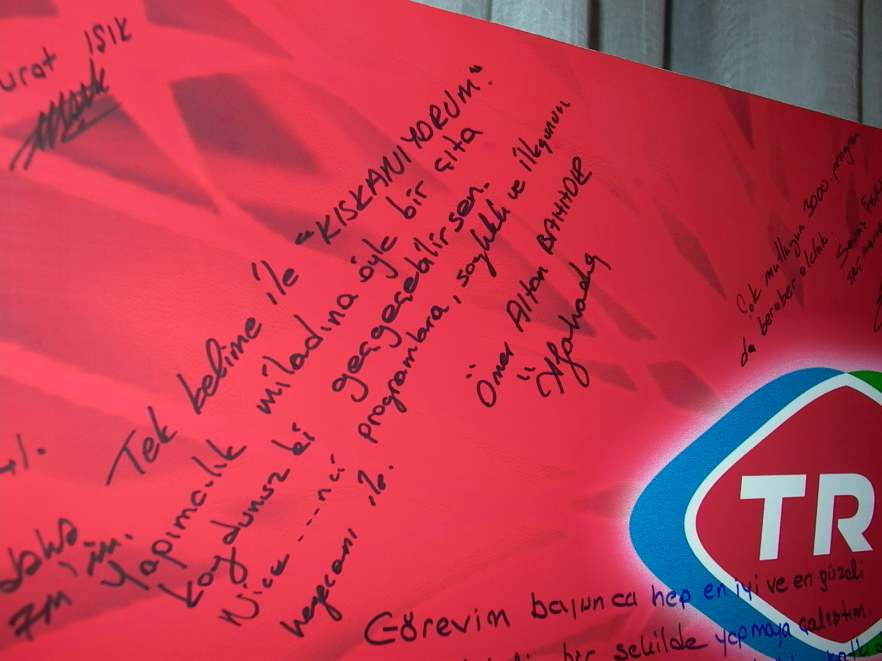 urat IŞIK
Tek kelime ile "KISKANIYORUM."
Yapımcılık miladına öyle bir çıta
koydunuz ki geçgeçebilirsen.
Nice ...ncı programlara, sağlıklı ve ilkgünün
heyecanı ile.
Ömer Altan
daha
Çok mutluyum 3000. program
da beraber olduk.
TR
Görevim boyunca hep en iyi ve en güzeli
bir şekilde yapmaya çalıştım.